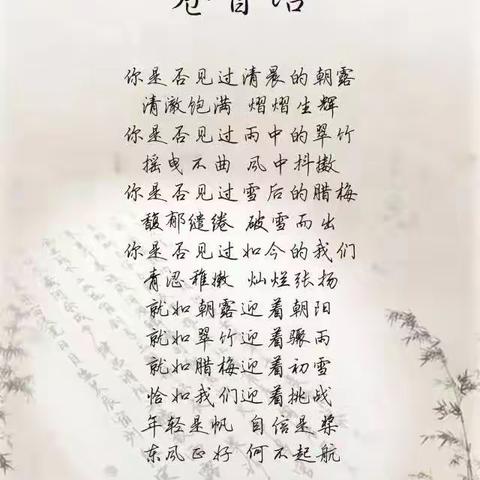 卷首语
你是否见过清晨的朝露
清澈饱满 熠熠生辉
你是否见过雨中的翠竹
摇曳不曲 风中抖擞
你是否见过雪后的腊梅
馥郁缱绻 破雪而出
你是否见过如今的我们
青涩稚嫩 灿烂张扬
就如朝露迎着朝阳
就如翠竹迎着骤雨
就如腊梅迎着初雪
恰如我们迎着挑战
年轻是帆 自信是桨
东风正好 何不起航